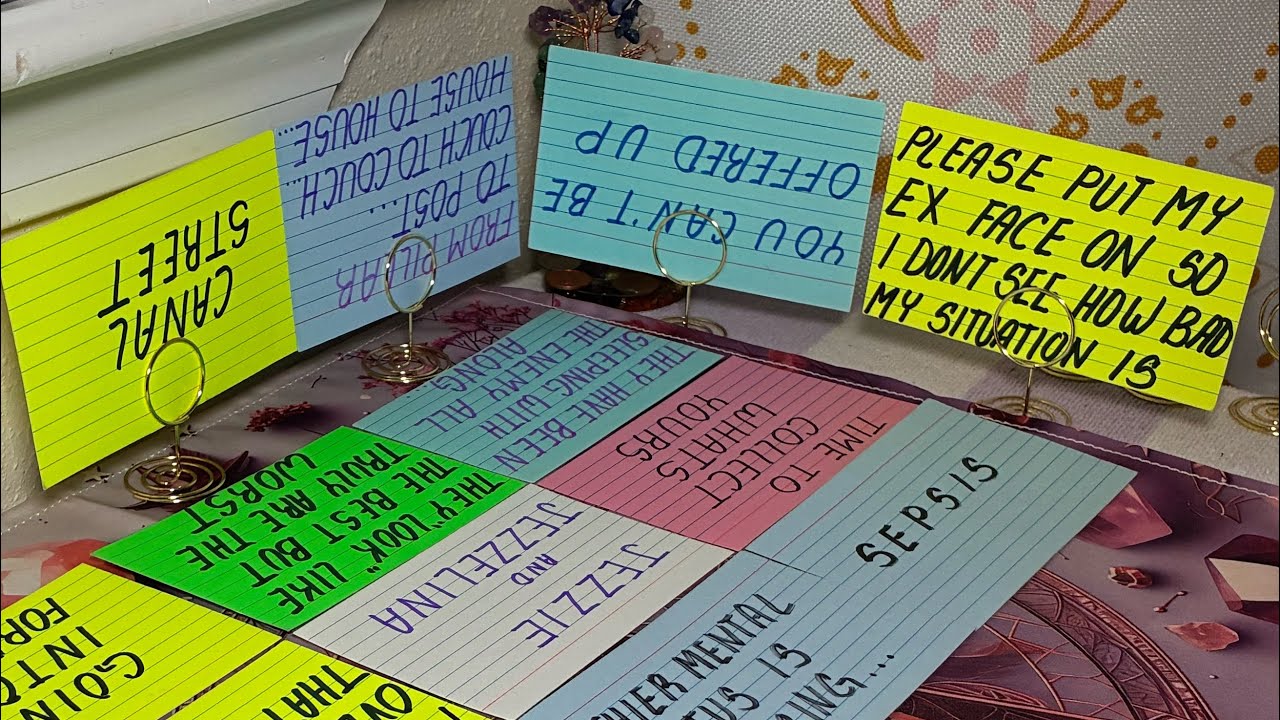 CANAL
STREET
FROM PILLAR
TO POST...
COUCH TO COUCH...
HOUSE TO HOUSE...
YOU CAN'T BE
OFFERED UP
PLEASE PUT MY
EX FACE ON SO
I DONT SEE HOW BAD
MY SITUATION IS
THEY HAVE BEEN
SLEEPING WITH
THE ENEMY ALL
ALONG
TIME TO
COLLECT
WHATS
YOURS
SEPSIS
THEY "LOOK" LIKE
THE BEST BUT
TRULY ARE THE
WORST
JEZZIE
AND
JEZZELINA
MENTAL
IS